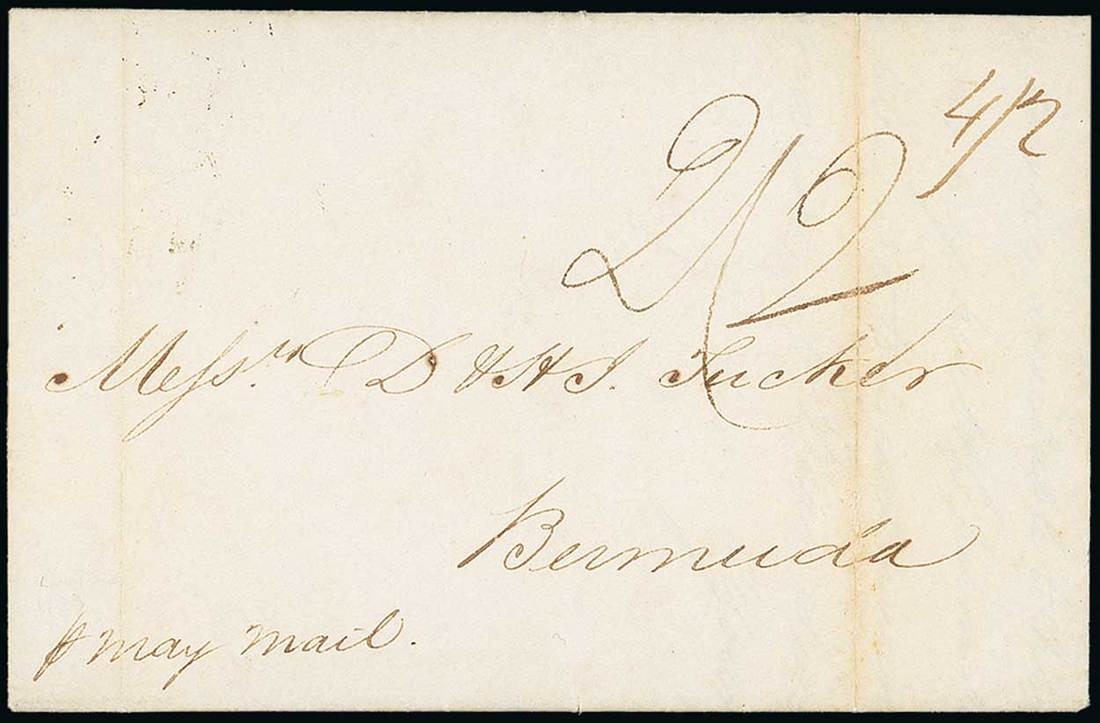 4/2
2/2
Messrs. D & H J. Tucker
Bermuda
p May Mail.